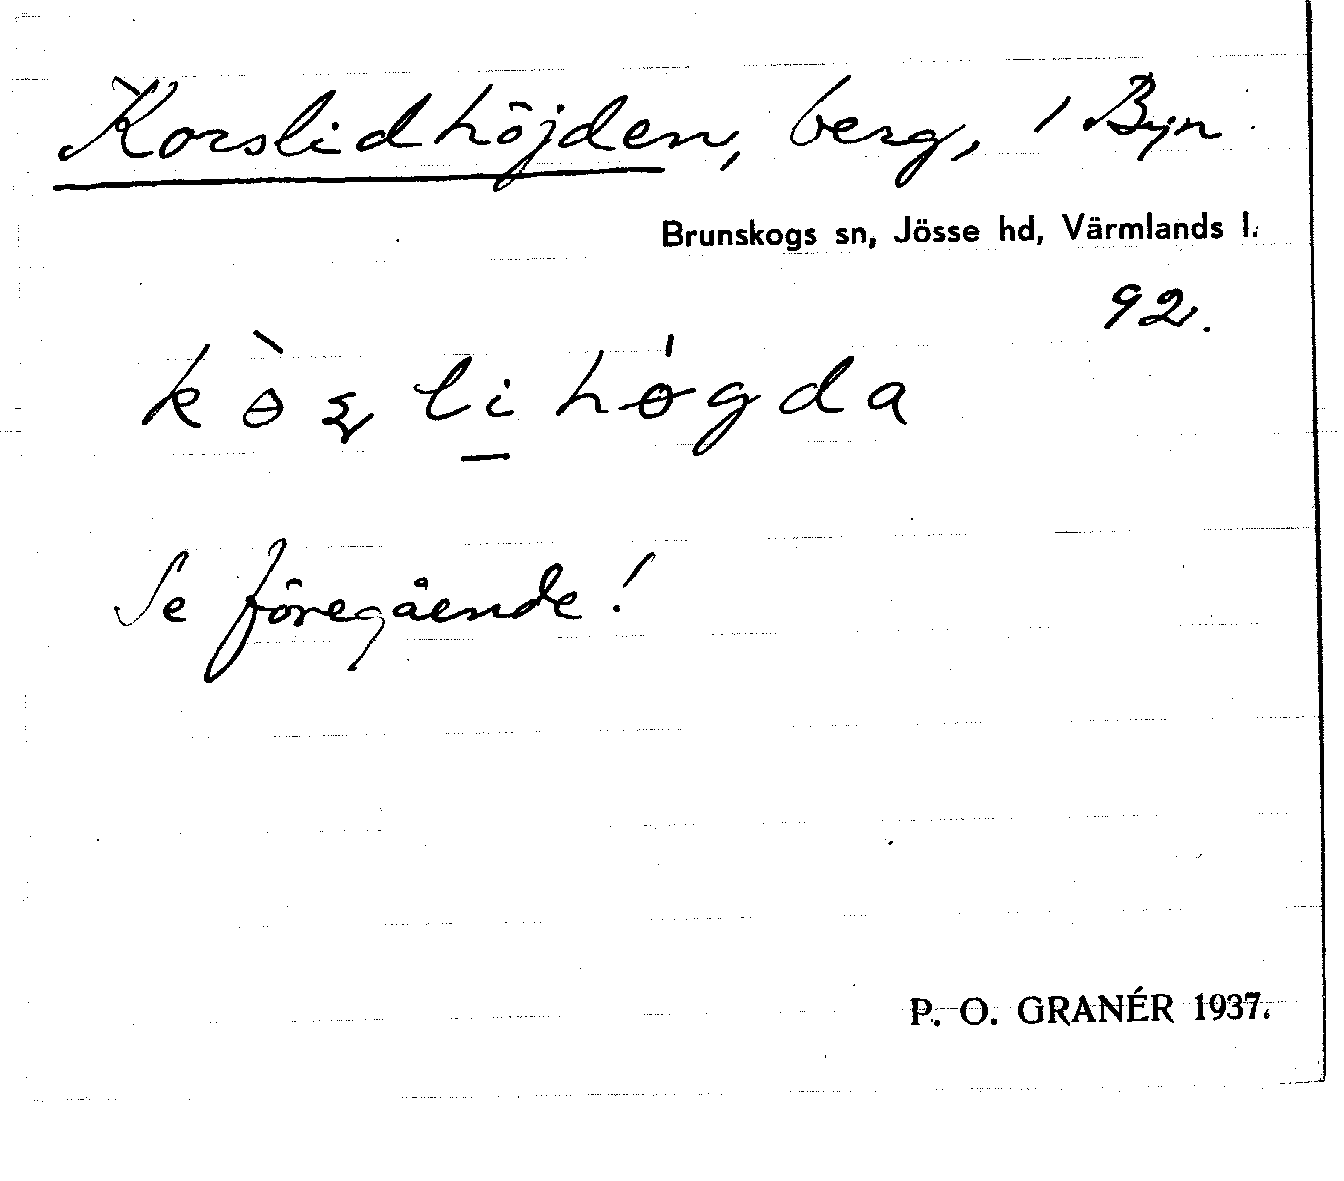 Korslidhöjden, berg, 1 Byn
Brunskogs sn, Jösse hd, Värmlands l.
92.
Se föregående!
P. O. GRANÉR 1937.